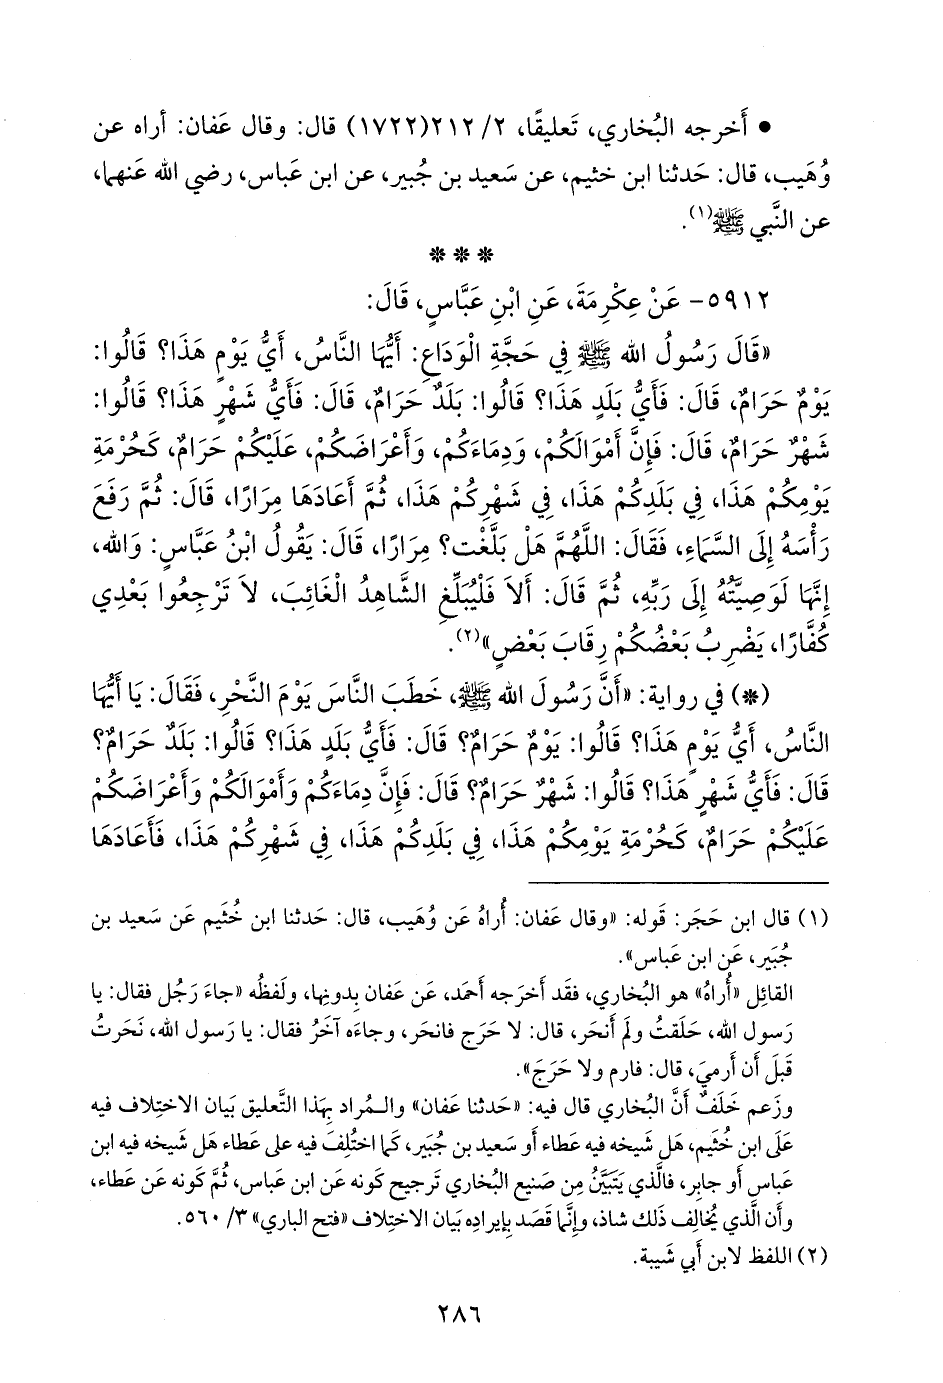 • أَخرجه البُخاري، تَعليقًا، ٢/ ٢١٢(١٧٢٢) قال: وقال عَفان: أُراه عن
وُهَيب، قال: حَدثنا ابن خثيم، عن سَعيد بن جُبير، عن ابن عَباس، رضي الله عَنهما،
عن النَّبي ﷺ(١).
* * *
٥٩١٢- عَنْ عِكْرِمَةَ، عَنِ ابْنِ عَبَّاسٍ، قَالَ:
«قَالَ رَسُولُ الله ﷺ فِي حَجَّةِ الْوَدَاعِ: أَيُّهَا النَّاسُ، أَيُّ يَوْمٍ هَذَا؟ قَالُوا:
يَوْمٌ حَرَامٌ، قَالَ: فَأَيُّ بَلَدٍ هَذَا؟ قَالُوا: بَلَدٌ حَرَامٌ، قَالَ: فَأَيُّ شَهْرٍ هَذَا؟ قَالُوا:
شَهْرٌ حَرَامٌ، قَالَ: فَإِنَّ أَمْوَالَكُمْ، وَدِمَاءَكُمْ، وَأَعْرَاضَكُمْ، عَلَيْكُمْ حَرَامٌ، كَحُرْمَةِ
يَوْمِكُمْ هَذَا، فِي بَلَدِكُمْ هَذَا، فِي شَهْرِكُمْ هَذَا، ثُمَّ أَعَادَهَا مِرَارًا، قَالَ: ثُمَّ رَفَعَ
رَأْسَهُ إِلَى السَّمَاءِ، فَقَالَ: اللَّهُمَّ هَلْ بَلَّغْتُ؟ مِرَارًا، قَالَ: يَقُولُ ابْنُ عَبَّاسٍ: وَالله،
إِنَّهَا لَوَصِيَّتُهُ إِلَى رَبِّهِ، ثُمَّ قَالَ: أَلاَ فَلْيُبَلِّغِ الشَّاهِدُ الْغَائِبَ، لاَ تَرْجِعُوا بَعْدِي
كُفَّارًا، يَضْرِبُ بَعْضُكُمْ رِقَابَ بَعْضٍ»(٢).
(*) في رواية: «أَنَّ رَسُولَ الله ﷺ، خَطَبَ النَّاسَ يَوْمَ النَّحْرِ، فَقَالَ: يَا أَيُّهَا
النَّاسُ، أَيُّ يَوْمٍ هَذَا؟ قَالُوا: يَوْمٌ حَرَامٌ؟ قَالَ: فَأَيُّ بَلَدٍ هَذَا؟ قَالُوا: بَلَدٌ حَرَامٌ؟
قَالَ: فَأَيُّ شَهْرٍ هَذَا؟ قَالُوا: شَهْرٌ حَرَامٌ؟ قَالَ: فَإِنَّ دِمَاءَكُمْ وَأَمْوَالَكُمْ وَأَعْرَاضَكُمْ
عَلَيْكُمْ حَرَامٌ، كَحُرْمَةِ يَوْمِكُمْ هَذَا، فِي بَلَدِكُمْ هَذَا، فِي شَهْرِكُمْ هَذَا، فَأَعَادَهَا
(١) قال ابن حَجَر: قَوله: «وقال عَفان: أُراهُ عَن وُهَيب، قال: حَدثنا ابن خُثَيم عَن سَعيد بن
جُبَير، عَن ابن عَباس».
القائِل «أُراهُ» هو البُخاري، فقَد أَخرَجه أَحمد، عَن عَفان بِدونها، ولَفظُه «جاءَ رَجُل فقال: يا
رَسول الله، حَلَقتُ ولَم أَنحَر، قال: لا حَرَج فانحَر، وجاءَه آخَرُ فقال: يا رَسول الله، نَحَرتُ
قَبلَ أَن أَرميَ، قال: فارم ولا حَرَجَ».
وزَعم خَلَفٌ أَنَّ البُخاري قال فيه: «حَدثنا عَفان» والـمُراد بِهَذا التَّعليق بَيان الاختِلاف فيه
عَلى ابن خُثَيم، هَل شَيخه فيه عَطاء أَو سَعيد بن جُبَير، كَما اختُلِفَ فيه على عَطاء هَل شَيخه فيه ابن
عَباس أَو جابِر، فالَّذي يَتَبَيَّنُ مِن صَنيع البُخاري تَرجيح كَونه عَن ابن عَباس، ثُمَّ كَونه عَن عَطاء،
وأَن الَّذي يُخالِف ذَلك شاذ، وإِنَّما قَصَد بِإِيرادِه بَيان الاختِلاف «فتح الباري» ٣/ ٥٦٠.
(٢) اللفظ لابن أَبي شَيبة.
٢٨٦